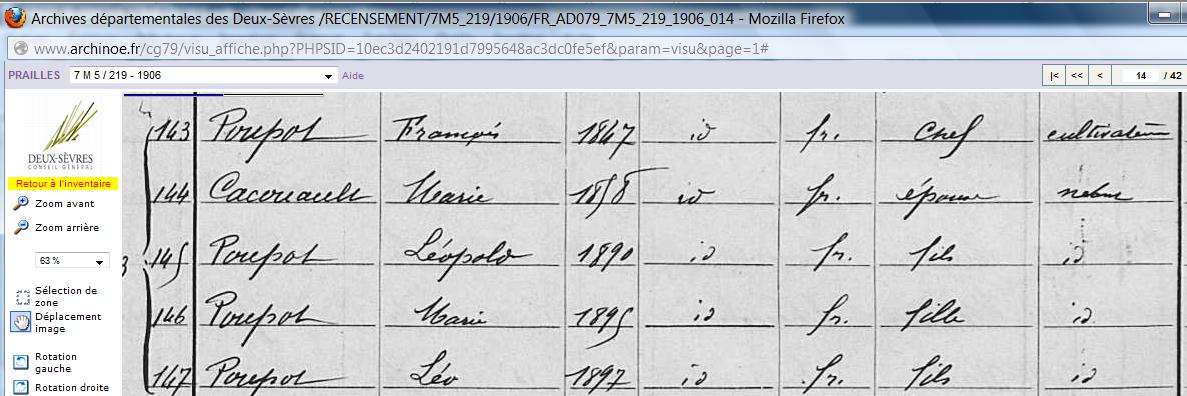 Archives départementales des Deux-Sèvres /RECENSEMENT/7M5_219/1906/FR_AD079_7M5_219_1906_014 - Mozilla Firefox
www.archinoe.fr/cg79/visu_affiche.php?PHPSID=10ec3d2402191d7995648ac3dc0fe5ef&param=visu&page=1#
PRAILLES 7 M 5 / 219 - 1906 Aide |< << < 14 / 42
DEUX-SÈVRES
CONSEIL GÉNÉRAL
Retour à l'inventaire
Zoom avant
Zoom arrière
63 %
Sélection de
zone
Déplacement
image
Rotation
gauche
Rotation droite
143 Poupot François 1847 id fr. chef cultivateur
144 Cacouault Marie 1858 id fr. épouse néant
145 Poupot Léopold 1890 id fr. fils id
146 Poupot Marie 1895 id fr. fille id
147 Poupot Léo 1897 id fr. fils id